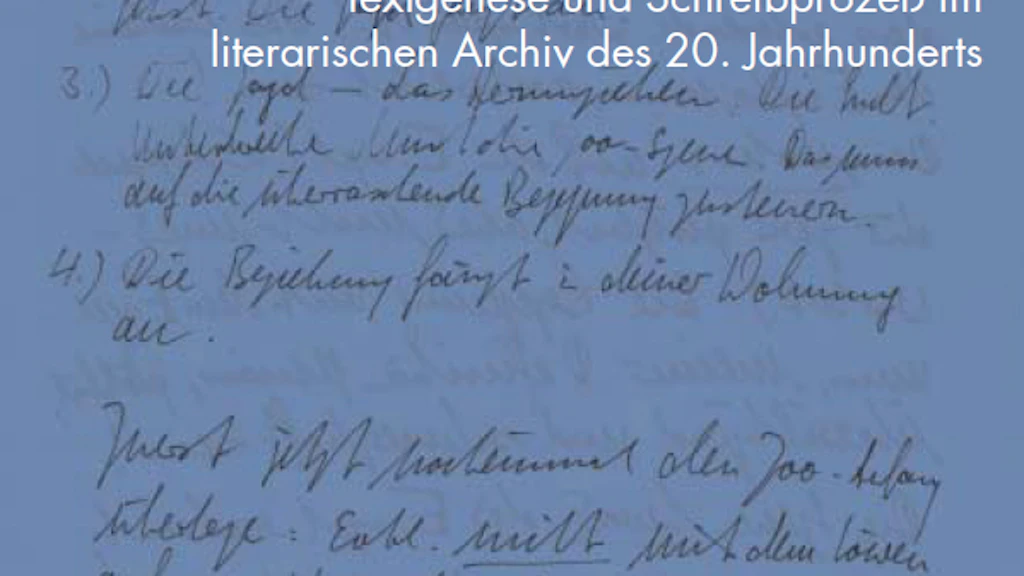 Textgenese und Schreibprozeß im
literarischen Archiv des 20. Jahrhunderts
3.) Die Jagd – das Herumziehen. Die
Und die Zoo-Szene. Das muss
auf die überraschende Begegnung zusteuern.
4.) Die Beziehung fängt in deiner Wohnung
an.
Zuerst jetzt nocheinmal den Zoo-Anfang
überlege: Evtl. nicht mit dem Löwen